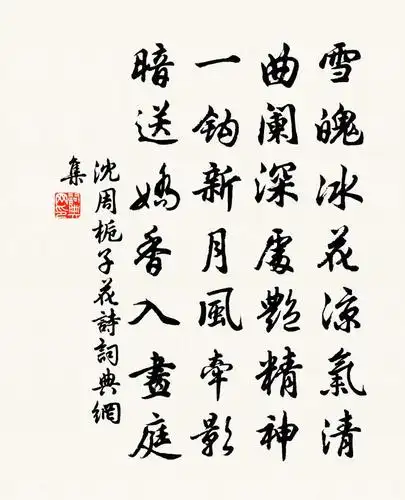 雪魄冰花凉氣清
曲阑深處艷精神
一鈎新月風牽影
暗送嬌香入畫庭
沈周栀子花詩詞典網
集